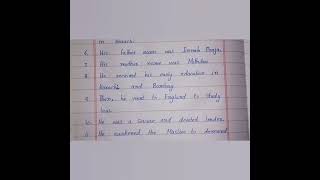 in Karachi.
6. His father name was Jinnah Poonja.
7. His mother name was Mithibai
8. He received his early education in
Karachi and Bombay
9. Then, he went to England to study
law.
10. He was a sincere and devoted leader.
11. He awakened the Muslims to demand